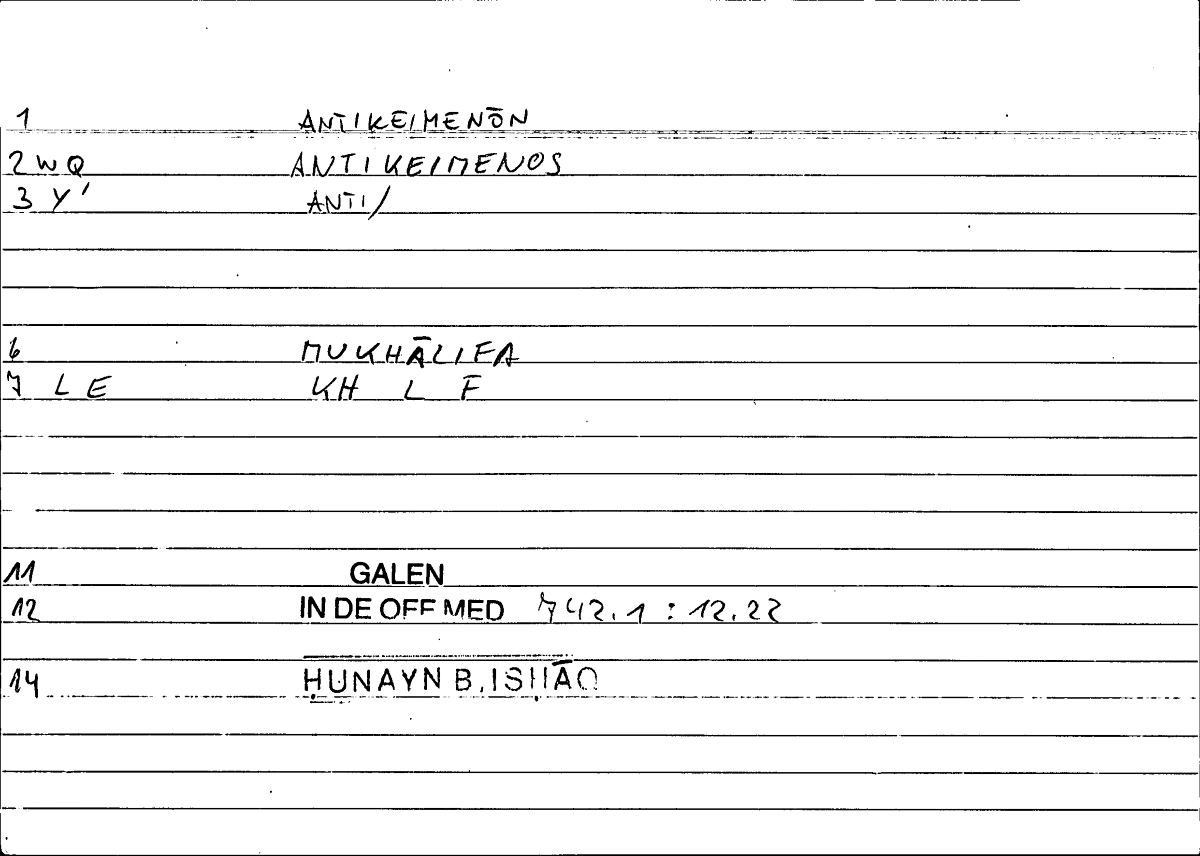 1 ANTIKEIMENŌN
2 W Q ANTIKEIMENOS
3 Y' ANTI/
6 MUKHĀLIFA
7 L E KH L F
11 GALEN
12 IN DE OFF MED 742.1 : 12.22
14 ḤUNAYN B. ISḤĀQ